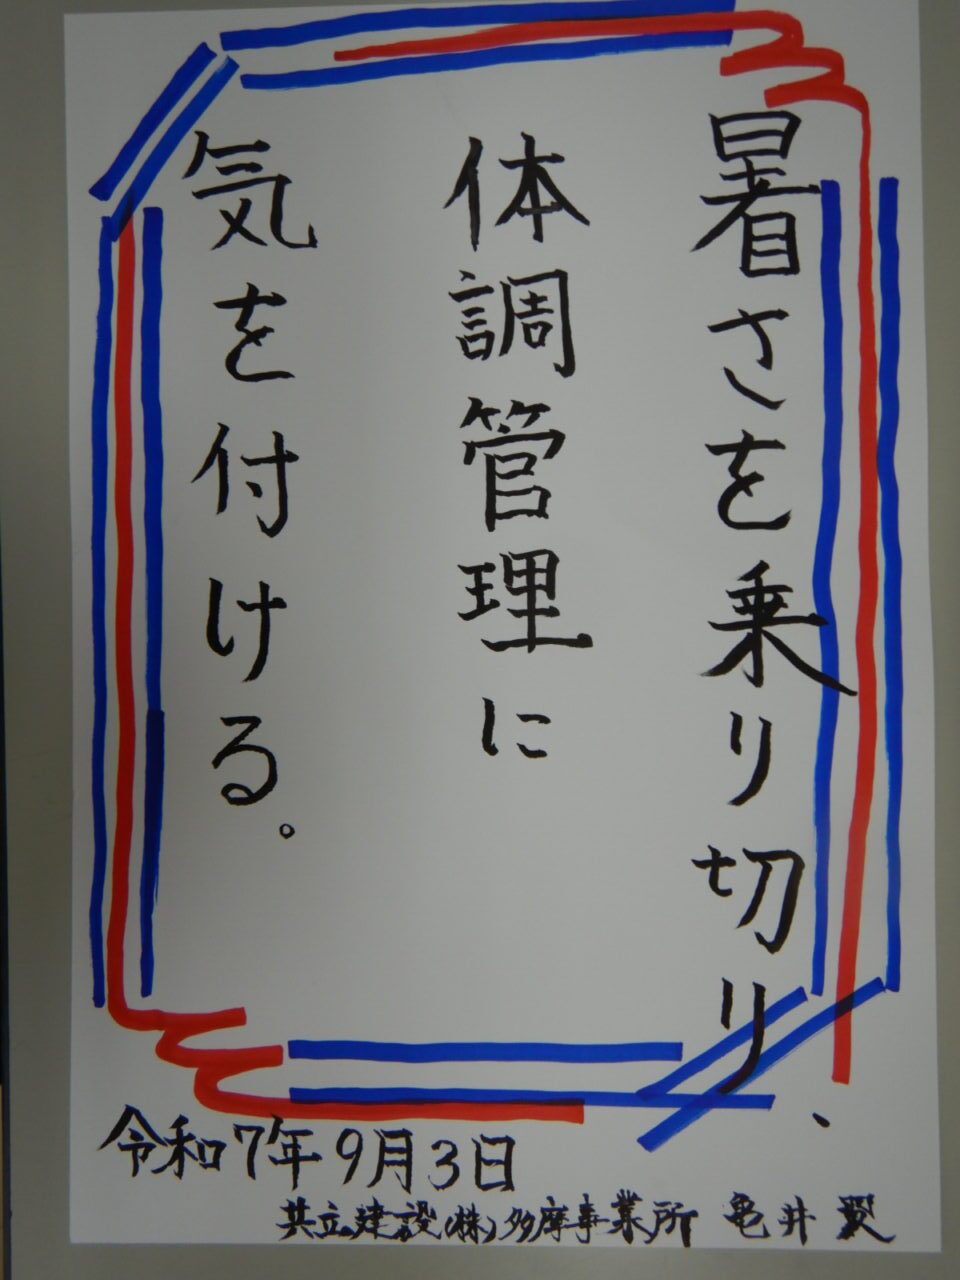 暑さを乗り切り、
体調管理に
気を付ける。
令和7年9月3日
共立建設(株)多摩事業所 亀井